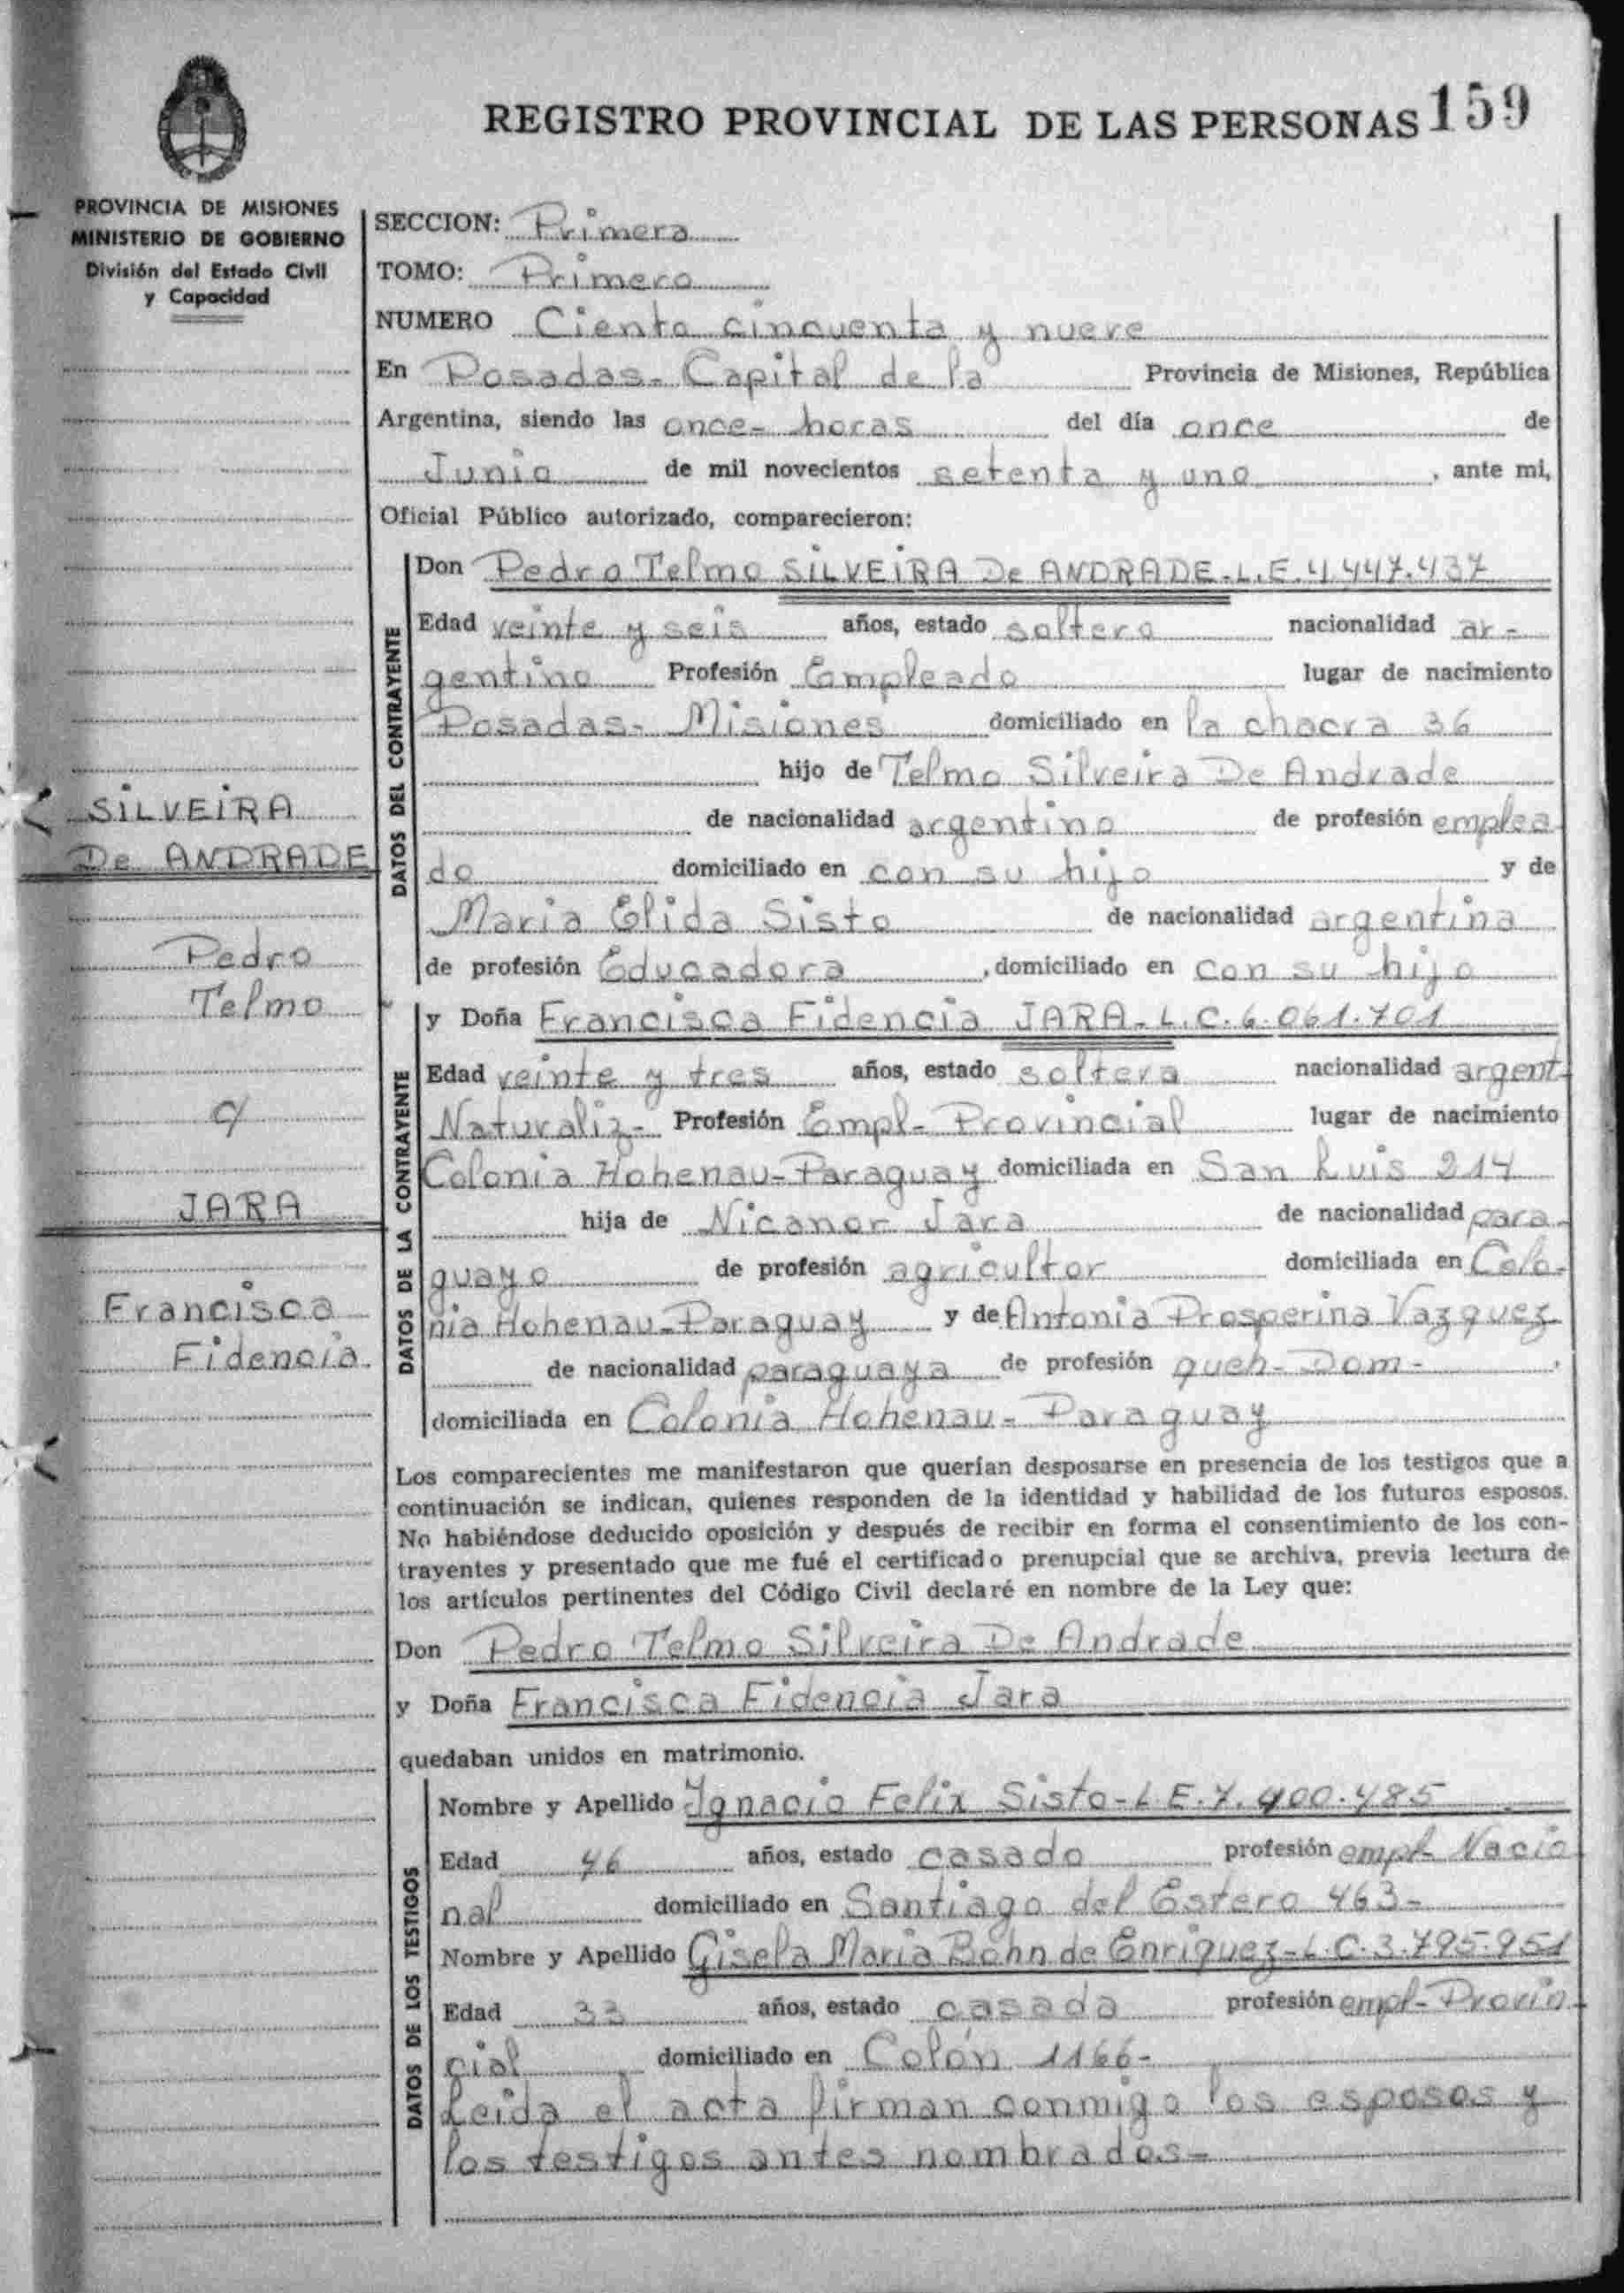 REGISTRO PROVINCIAL DE LAS PERSONAS 159
PROVINCIA DE MISIONES
MINISTERIO DE GOBIERNO
División del Estado Civil
y Capacidad
SILVEIRA
De ANDRADE
Pedro
Telmo
c/
JARA
Francisca
Fidencia
SECCION: Primera
TOMO: Primero
NUMERO Ciento cincuenta y nueve
En Posadas- Capital de la Provincia de Misiones, República
Argentina, siendo las once- horas del día once de
Junio de mil novecientos setenta y uno, ante mi,
Oficial Público autorizado, comparecieron:
DATOS DEL CONTRAYENTE
Don Pedro Telmo SILVEIRA De ANDRADE-L.E.4.447.437
Edad veinte y seis años, estado soltero nacionalidad ar-
gentino Profesión Empleado lugar de nacimiento
Posadas- Misiones domiciliado en la chacra 36
hijo de Telmo Silveira De Andrade
de nacionalidad argentino de profesión emplea
do domiciliado en con su hijo y de
Maria Elida Sisto de nacionalidad argentina
de profesión Educadora, domiciliado en con su hijo
DATOS DE LA CONTRAYENTE
y Doña Francisca Fidencia JARA-L.C.6.061.701
Edad veinte y tres años, estado soltera nacionalidad argent-
Naturaliz- Profesión Empl- Provincial lugar de nacimiento
Colonia Hohenau-Paraguay domiciliada en San Luis 214
hija de Nicanor Jara de nacionalidad para-
guayo de profesión agricultor domiciliada en Colo-
nia Hohenau-Paraguay y de Antonia Prosperina Vazquez
de nacionalidad paraguaya de profesión queh-Dom-,
domiciliada en Colonia Hohenau- Paraguay
Los comparecientes me manifestaron que querían desposarse en presencia de los testigos que a
continuación se indican, quienes responden de la identidad y habilidad de los futuros esposos.
No habiéndose deducido oposición y después de recibir en forma el consentimiento de los con-
trayentes y presentado que me fué el certificado prenupcial que se archiva, previa lectura de
los artículos pertinentes del Código Civil declaré en nombre de la Ley que:
Don Pedro Telmo Silveira De Andrade
y Doña Francisca Fidencia Jara
quedaban unidos en matrimonio.
DATOS DE LOS TESTIGOS
Nombre y Apellido Ignacio Felix Sisto-L.E.7.400.485
Edad 46 años, estado casado profesión empl- Nacio
nal domiciliado en Santiago del Estero 463-
Nombre y Apellido Gisela Maria Bohn de Enriquez-L.C.3.795.951
Edad 33 años, estado casada profesión empl- Provin
cial domiciliado en Colón 1166-
Leida el acta firman conmigo los esposos y
los testigos antes nombrados-